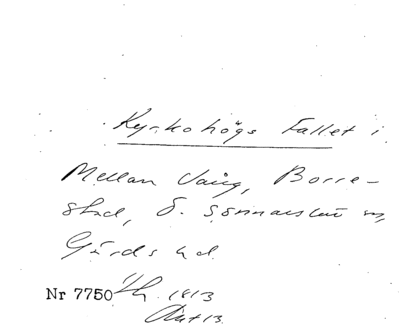 Kyrkohögs Fallet i
Mellan Vång, Borre-
stad, Ö. Sönnarslöv sn,
Gärds hd.
Nr 7750 1813
Akt 13.